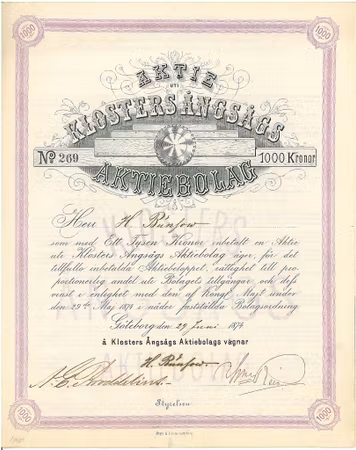 1000 1000
AKTIE
UTI
KLOSTERS ÅNGSÅGS
No 269 1000 Kronor
AKTIEBOLAG
Herr H. Bünsow
som med Ett Tusen Kronor inbetalt en Aktie
uti Klosters Ångsågs Aktiebolag äger, för det
tillfullo inbetalda Aktiebeloppet, rättighet till pro-
portionerlig andel uti Bolagets tillgångar och dess
vinst i enlighet med den af Kongl. Majt under
den 29de Maj 1874 fastställda Bolagsordning
Göteborg den 29 Juni 1874
å Klosters Ångsågs Aktiebolags vägnar
H. Bünsow
Styrelse
1000 1000